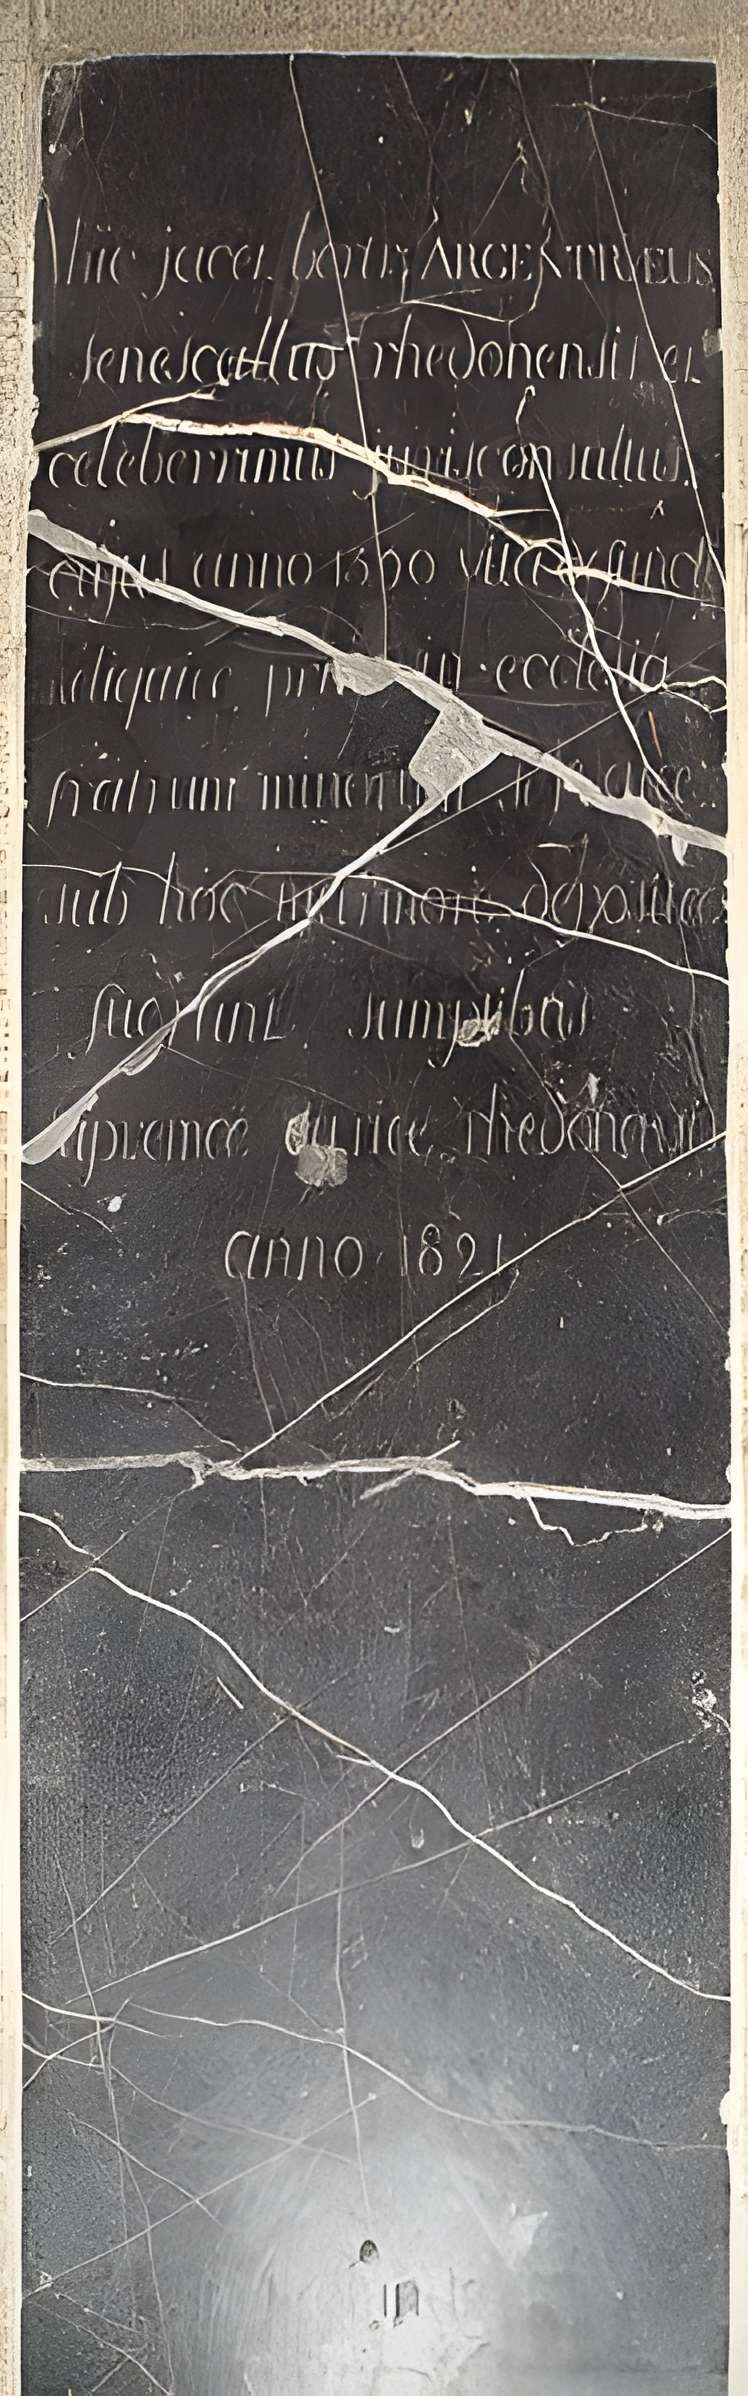 hic jacet bertr ARGENTRÆUS
senescallus rhedonensis et
celeberrimus jurisconsultus.
cujus anno 1590 vita functi
reliquiæ in ecclesia
fratrum minorum
sub hoc marmore depositæ
fuerunt sumptibus
supremæ curiæ rhedonensis
anno 1821